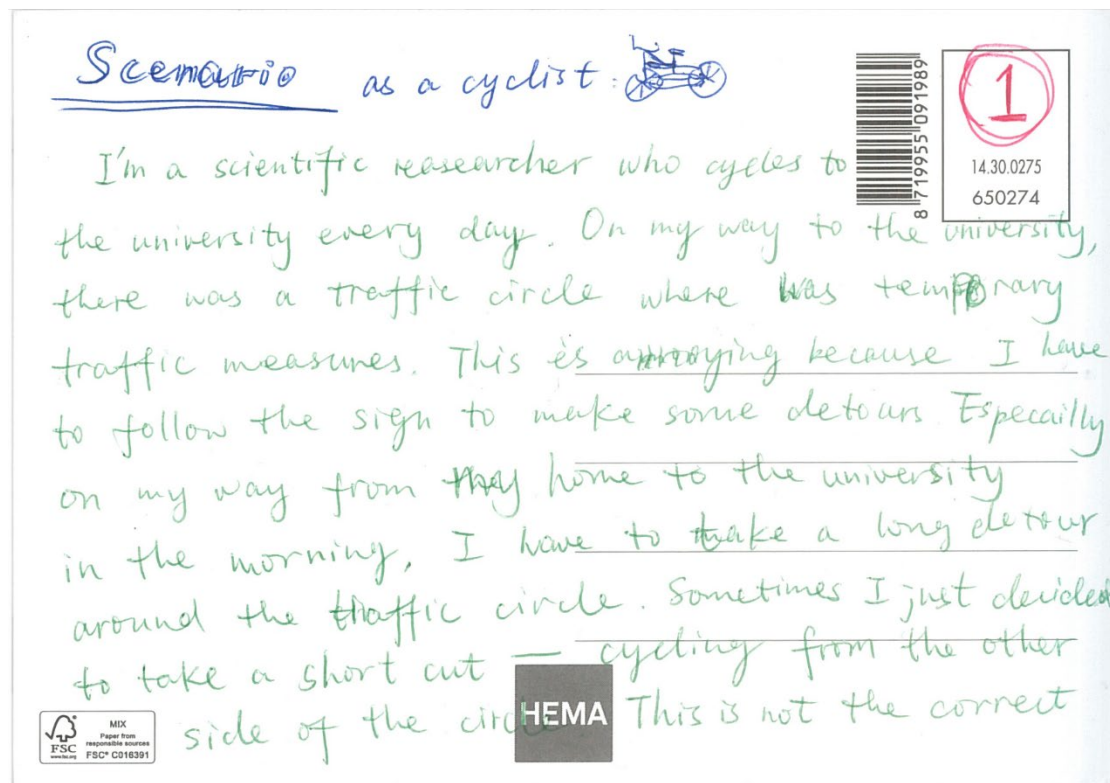 Scenario as a cyclist:
1
8 719955 091989
14.30.0275
650274
I'm a scientific reasearcher who cycles to
the university every day. On my way to the university,
there was a traffic circle where was temporary
traffic measures. This is annoying because I have
to follow the sign to make some detours. Especailly
on my way from my home to the university
in the morning, I have to take a long detour
around the traffic circle. Sometimes I just decided
to take a short cut — cycling from the other
side of the circle. This is not the correct
HEMA
FSC
www.fsc.org
MIX
Paper from
responsible sources
FSC® C016391